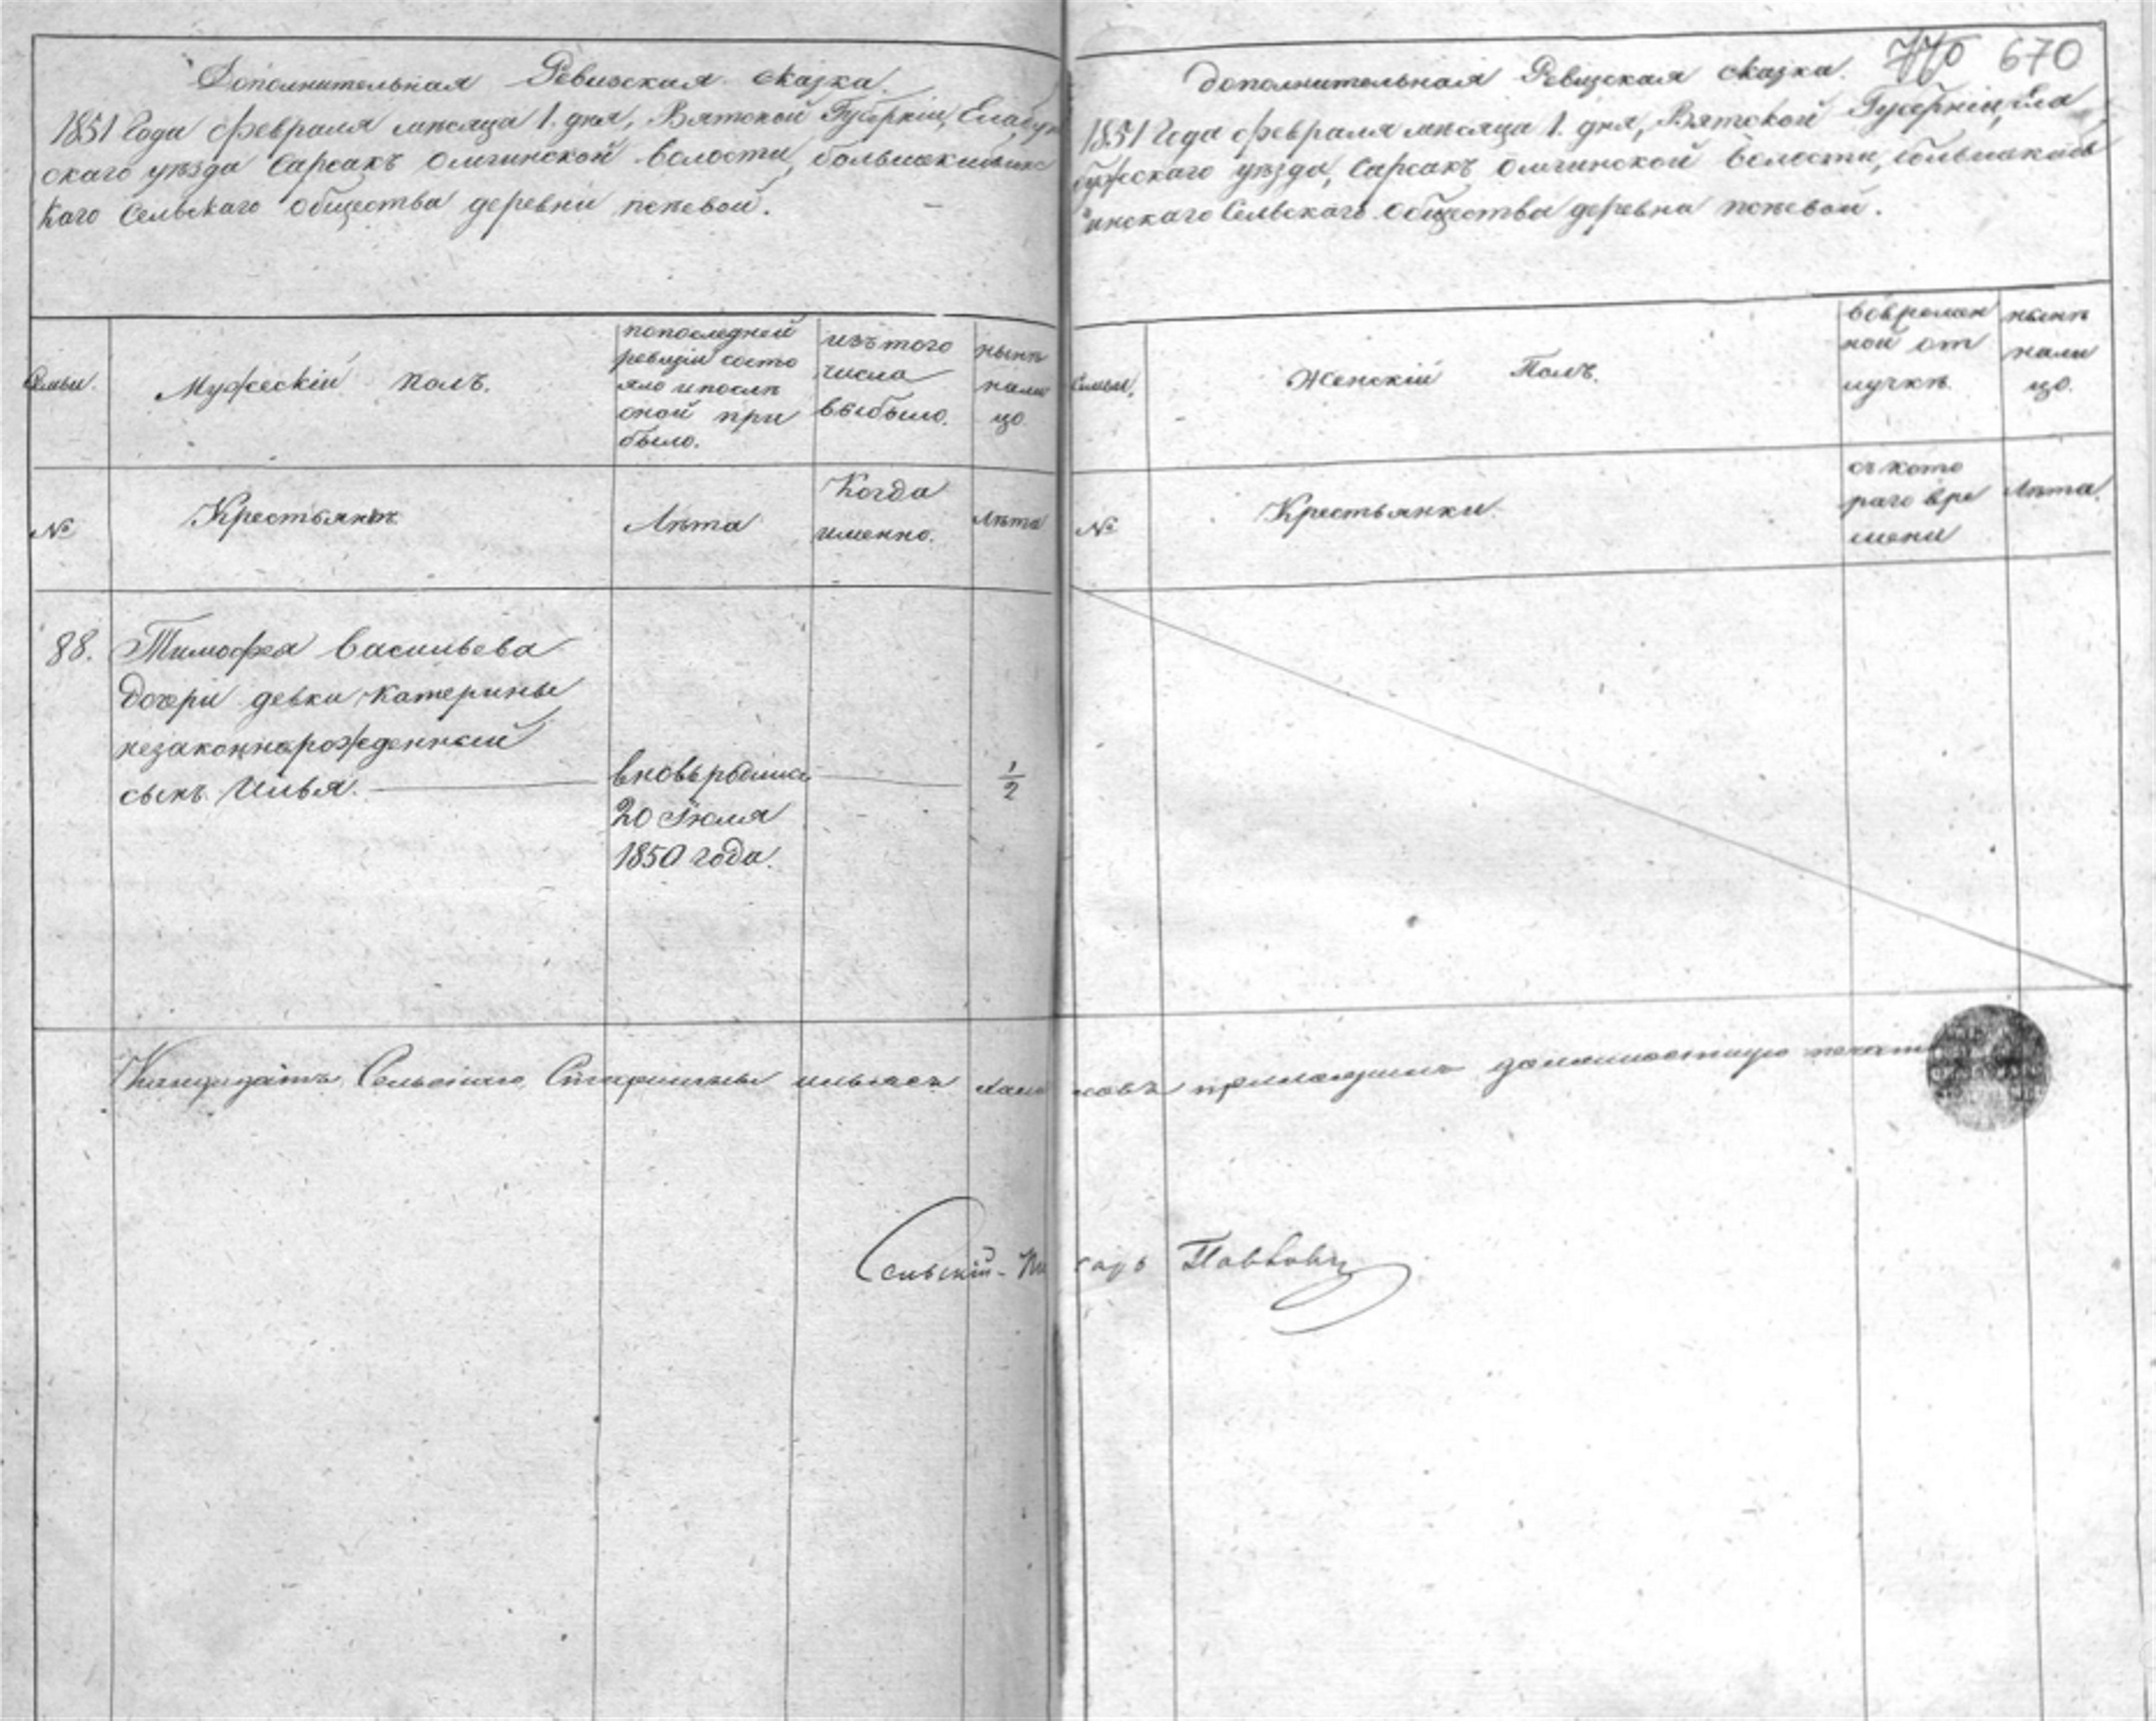 Дополнительная Ревизская сказка.
1851 Года Февраля месяца 1. дня, Вятской Губерніи, Елабуж
скаго уезда Сарсакъ Омгинской волости,
каго Сельскаго общества деревни
Семьи.
Мужескій полъ.
попоследней
ревизіи состо
яло ипосле
оной при
было.
изътого
числа
выбыло.
ныне
нали
цо
№
Крестьянъ
Лѣта
Когда
именно.
Лѣта
88.
Тимофея Васильева
дочери девки Катерины
незаконнорожденный
сынъ Илья.
вновьродился
20 Іюля
1850 года.
1/2
дополнительная Ревизская сказка.
670
1851 Года Февраля месяца 1. дня, Вятской Губерніи, Ела
бужскаго уезда, Сарсакъ Омгинской волости,
инскаго Сельскаго Общества деревни
Семьи.
Женскій Полъ.
вовремен
ной от
лучкѣ
ныне
нали
цо.
№
Крестьянки.
съкото
раго вре
мени
Лѣта.
Кандидатъ Сельскаго Старшины Ильясъ приложилъ
Сельскій Писарь